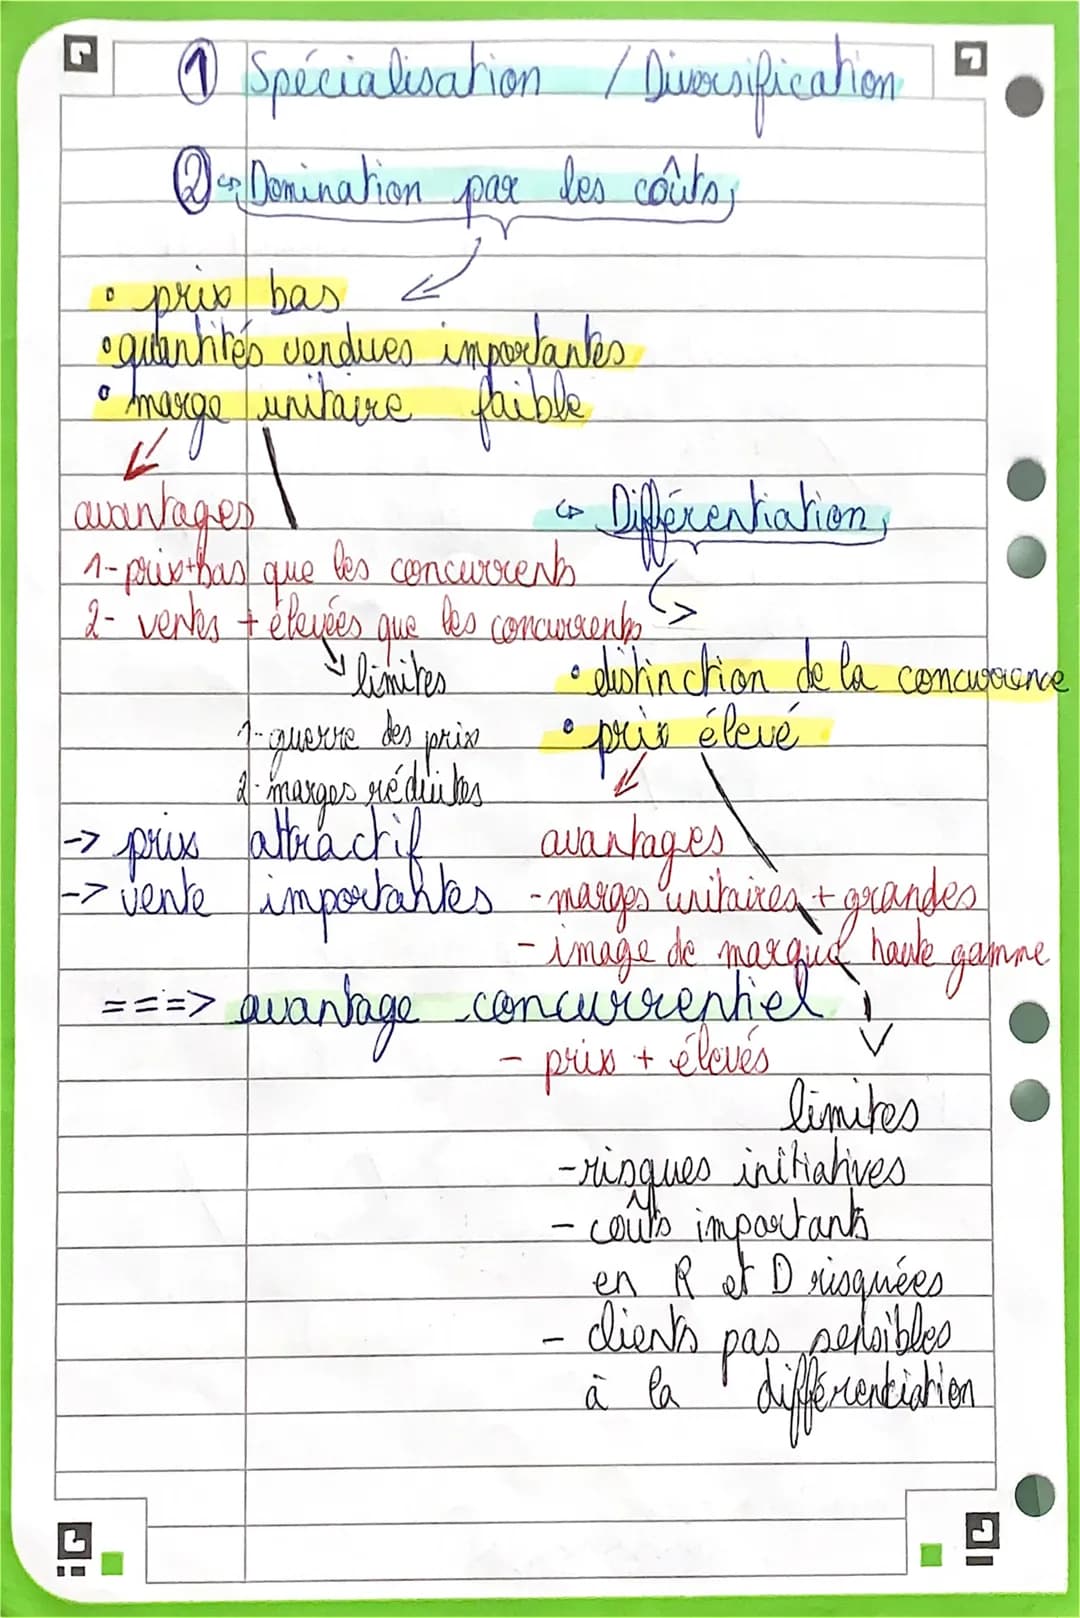 ① Spécialisation / Diversification
② ↪ Domination par les coûts
• prix bas
• quantités vendues importantes
• marge unitaire faible
avantages
1- prix + bas que les concurrents
2- ventes + élevées que les concurrents
limites
1- guerre des prix
2- marges réduites
-> prix attractif
-> vente importantes
===> avantage concurrentiel
↪ Différentiation
• distinction de la concurrence
• prix élevé
avantages
- marges unitaires + grandes
- image de marque haute gamme
- prix + élevés
limites
- risques initiatives
- coûts importants
en R et D risquées
- clients pas sensibles
à la différentiation